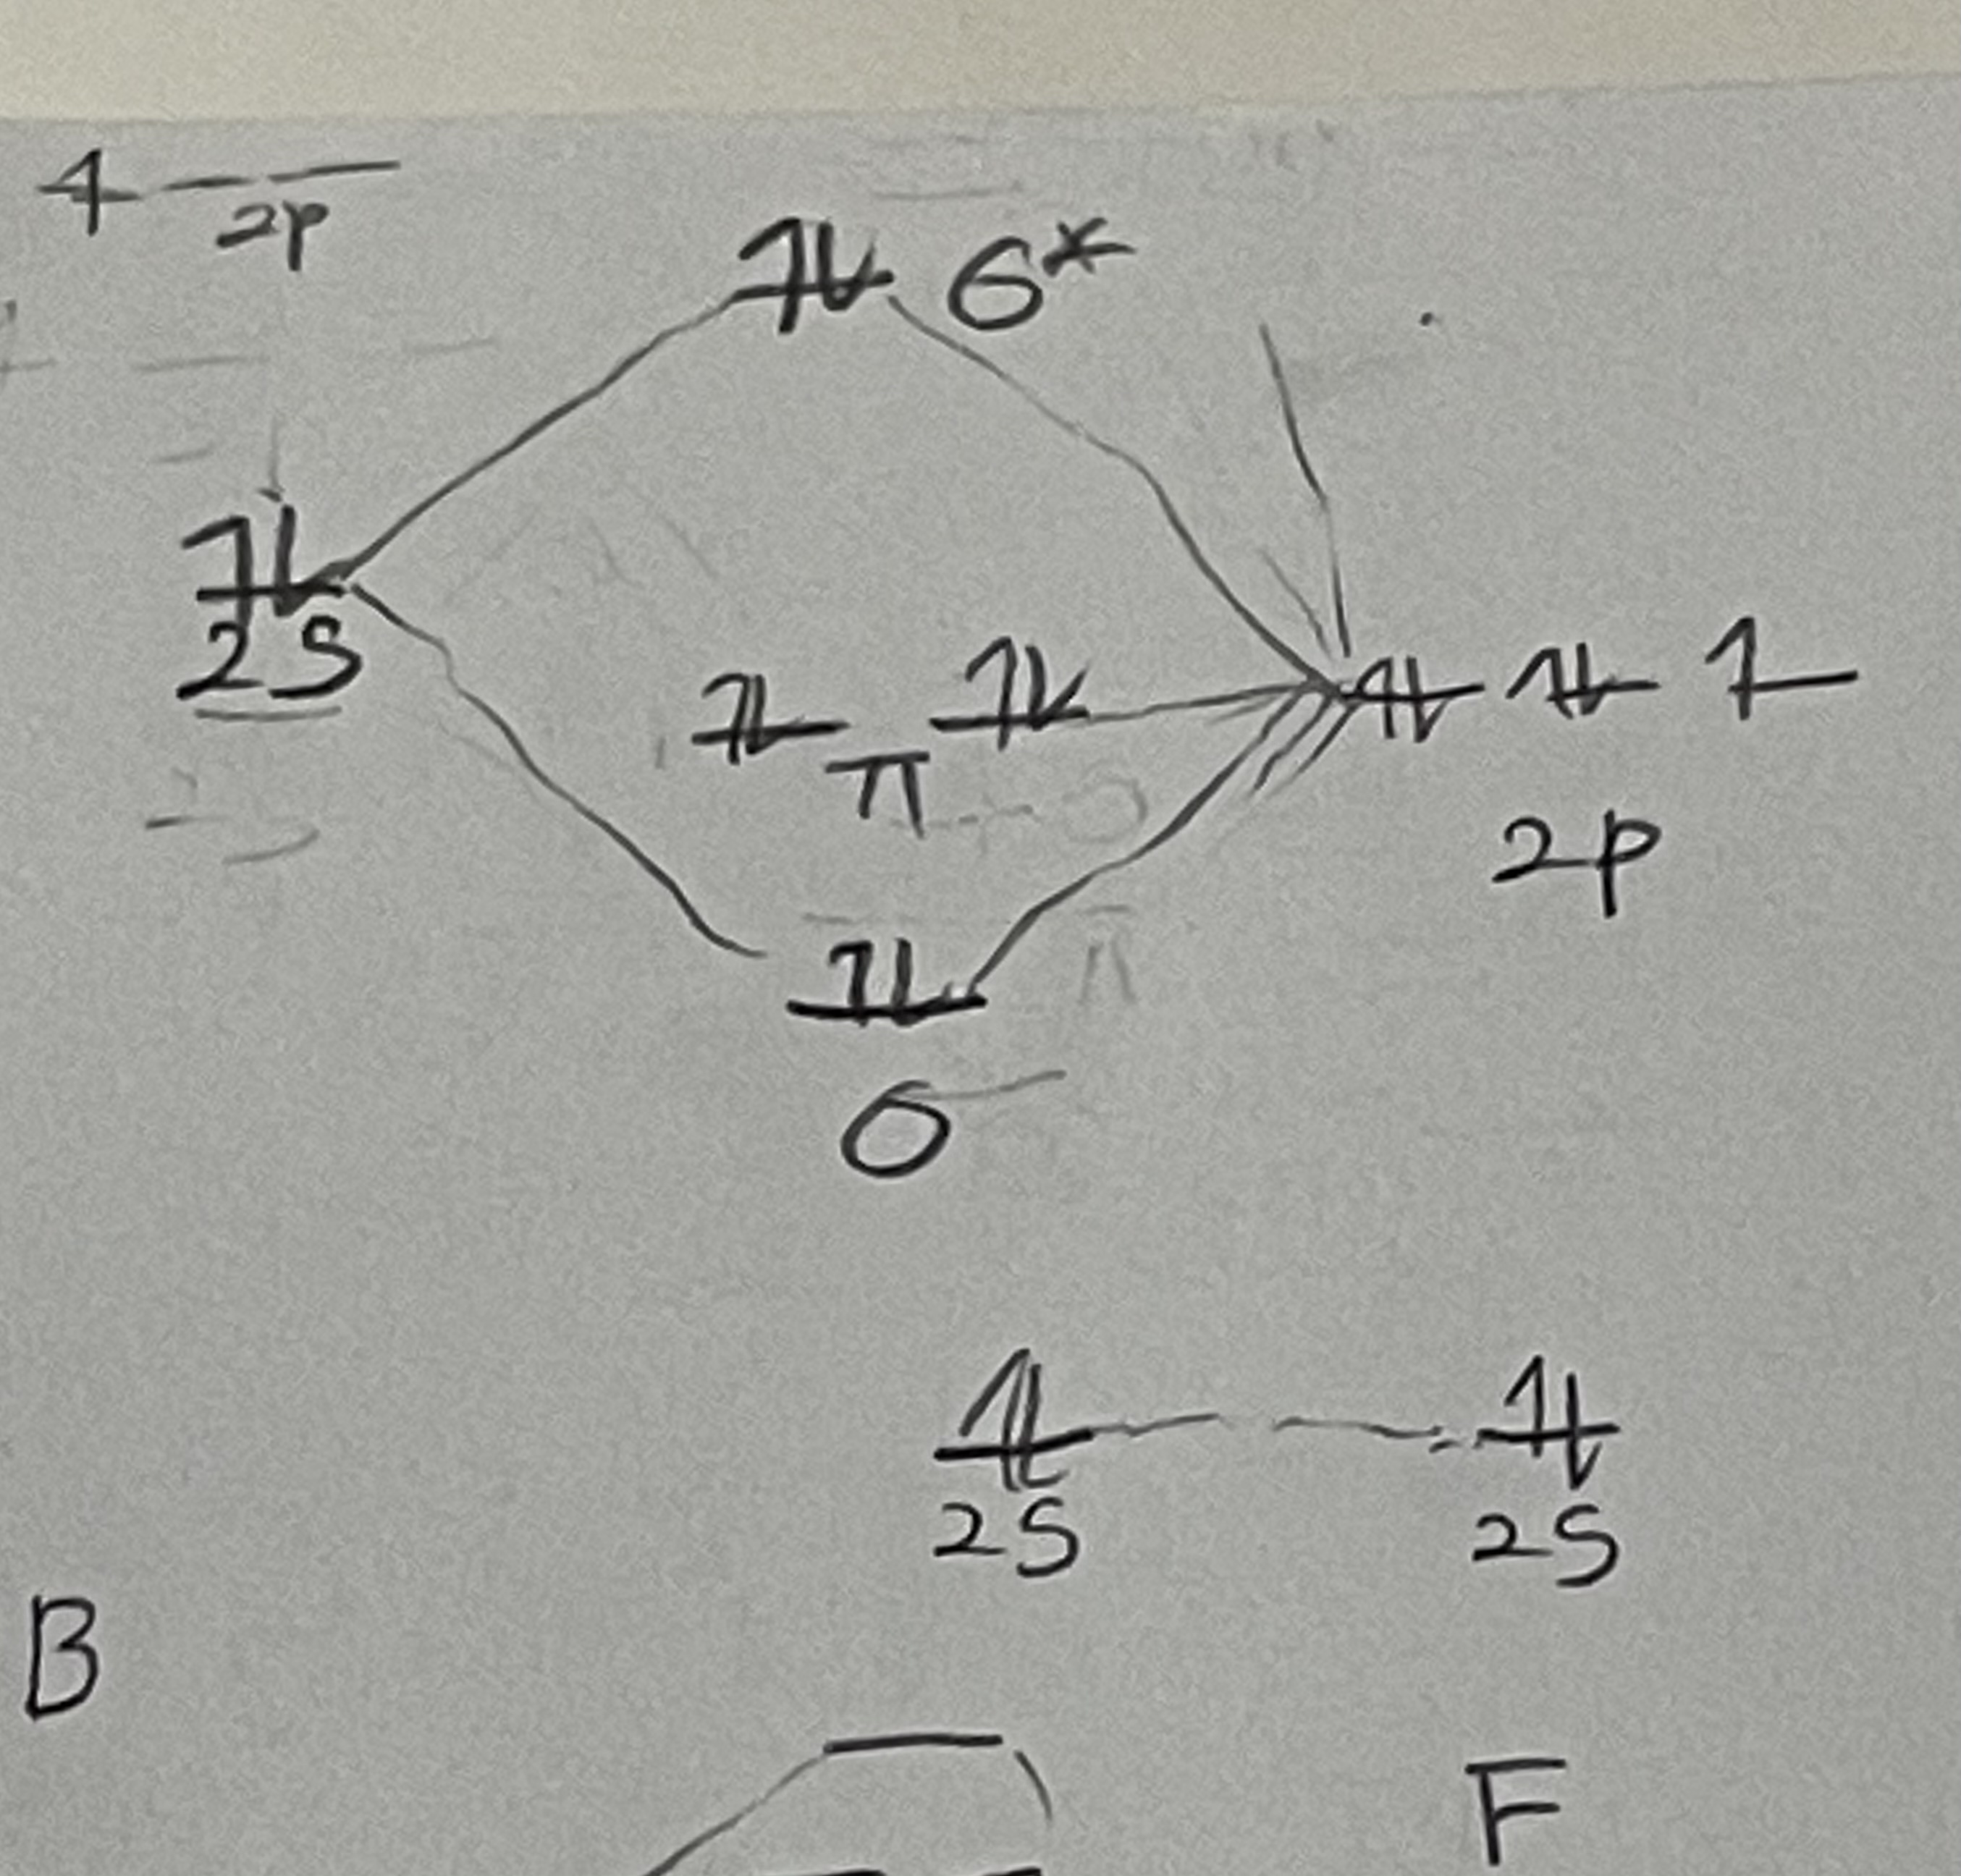 2p
σ*
2S
π
2p
σ
2S 2S
B
F